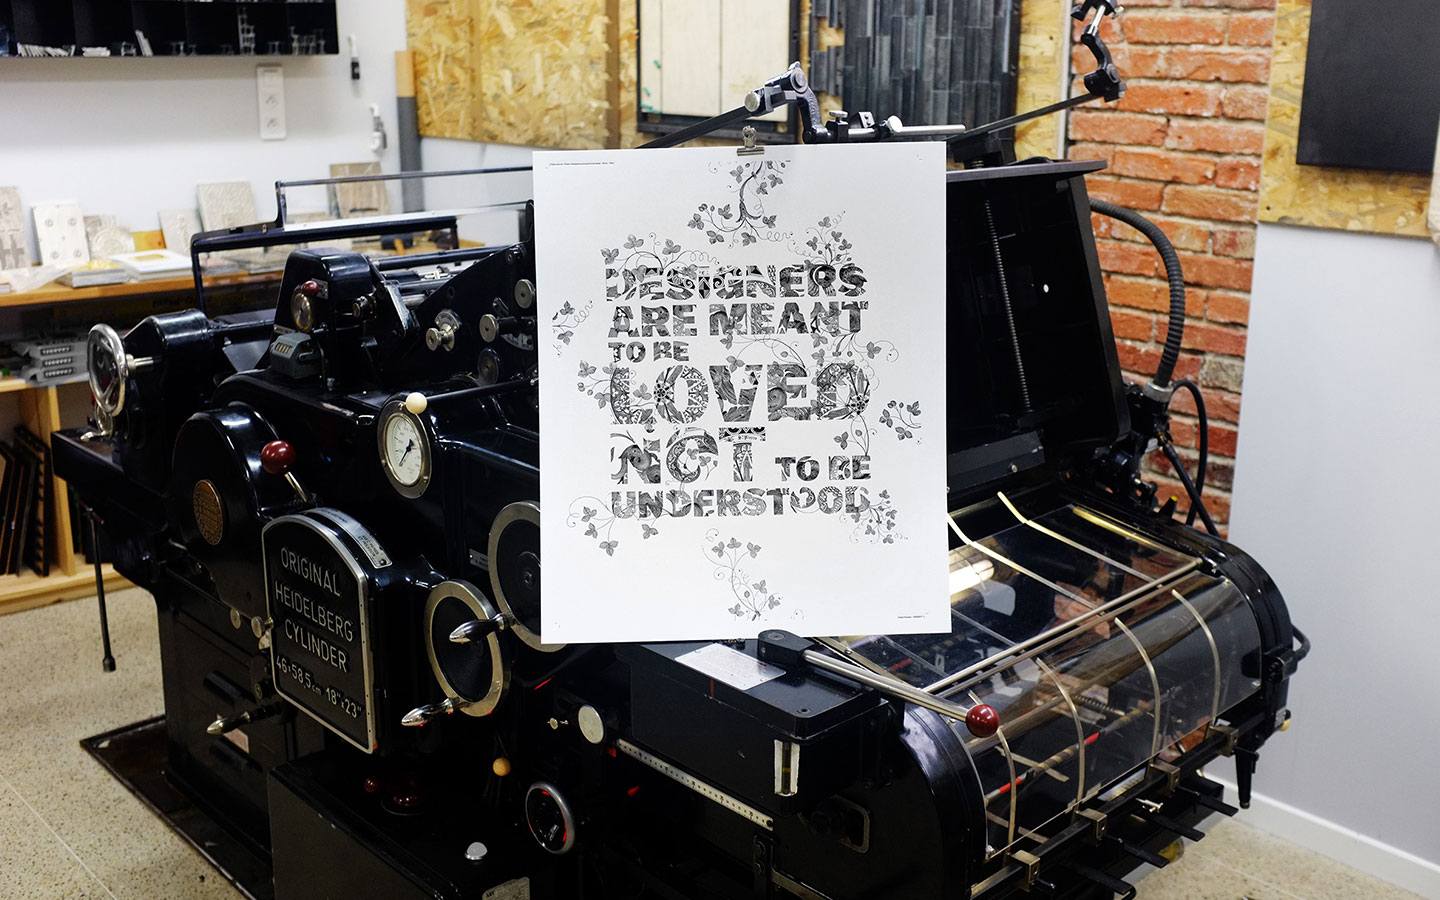 DESIGNERS
ARE MEANT
TO BE
LOVED
NOT TO BE
UNDERSTOOD
ORIGINAL
HEIDELBERG
CYLINDER
46x58,5cm 18"x23"